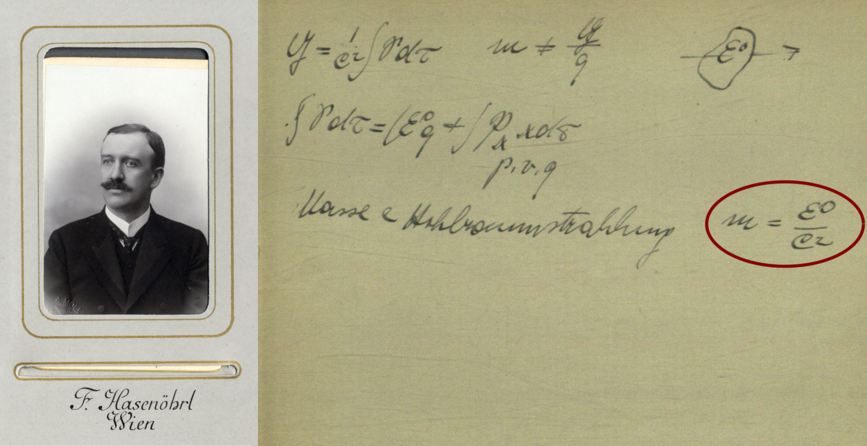 F. Hasenöhrl
Wien
y = 1/c² ∫ P dτ m ≠ y/q ε⁰ →
∫ P dτ = (ε⁰ q + ∫ pₓ x dσ
p.v.q
Masse e Hohlraumstrahlung m = ε⁰/c²